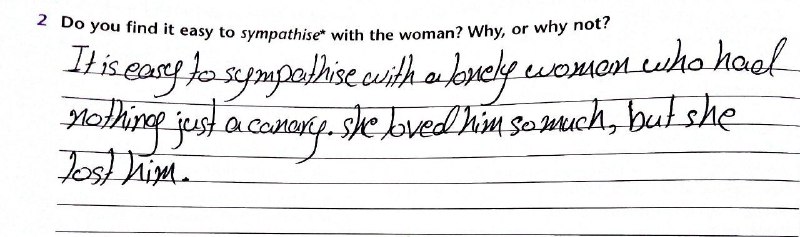 2 Do you find it easy to sympathise* with the woman? Why, or why not?
It is easy to sympathise with a lonely woman who had
nothing just a canary. she loved him so much, but she
lost him.